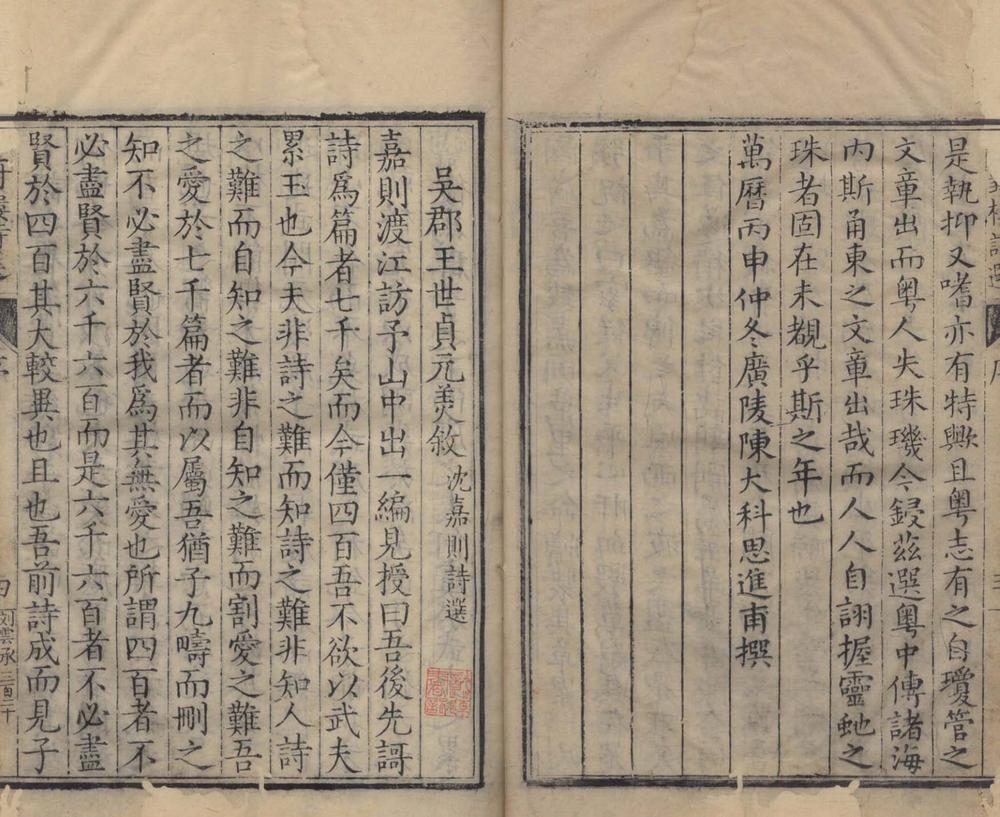 詩選
序
是孰抑又嗜亦有特歟且粤志有之自瓊管之
文章出而粤人失珠璣今鋟茲選粤中傳諸海
内斯甬東之文章出哉而人人自詡握靈虵之
珠者固在未覩乎斯之年也
萬曆丙申仲冬廣陵陳大科思進甫撰
吳郡王世貞元美敘 沈嘉則詩選
嘉則渡江訪予山中出一編見授曰吾後先謌
詩爲篇者七千矣而今僅四百吾不欲以武夫
累玉也今夫非詩之難而知詩之難非知人詩
之難而自知之難非自知之難而割愛之難吾
之愛於七千篇者而以屬吾猶子九疇而刪之
知不必盡賢於我爲其無愛也所謂四百者不
必盡賢於六千六百而是六千六百者不必盡
賢於四百其大較異也且也吾前詩成而見子
四
刘雲承
三百二十